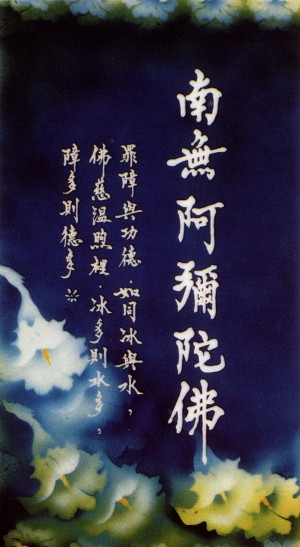 南無阿彌陀佛
罪障與功德．如同冰與水，
佛慈溫煦裡．冰多則水多，
障多則德多※